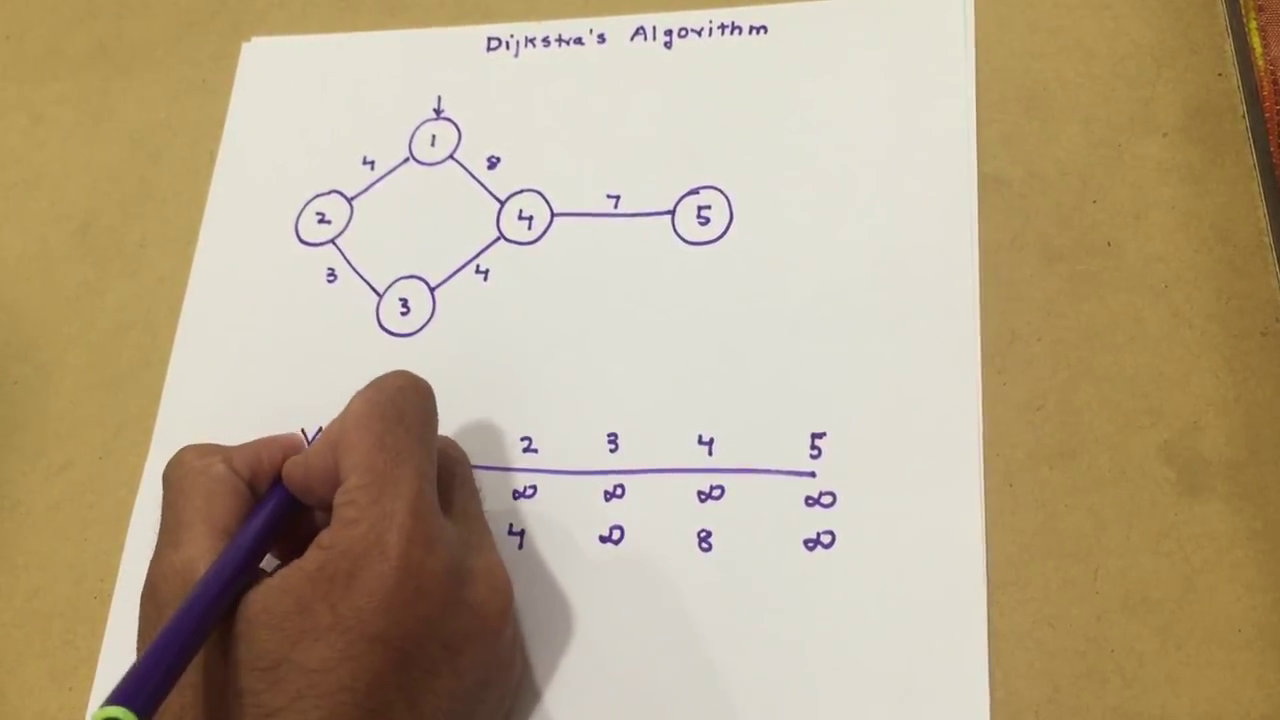 Dijkstra's Algorithm
1
4 8
2 4 7 5
3 4
3
V 2 3 4 5
∞ ∞ ∞ ∞
4 ∞ 8 ∞